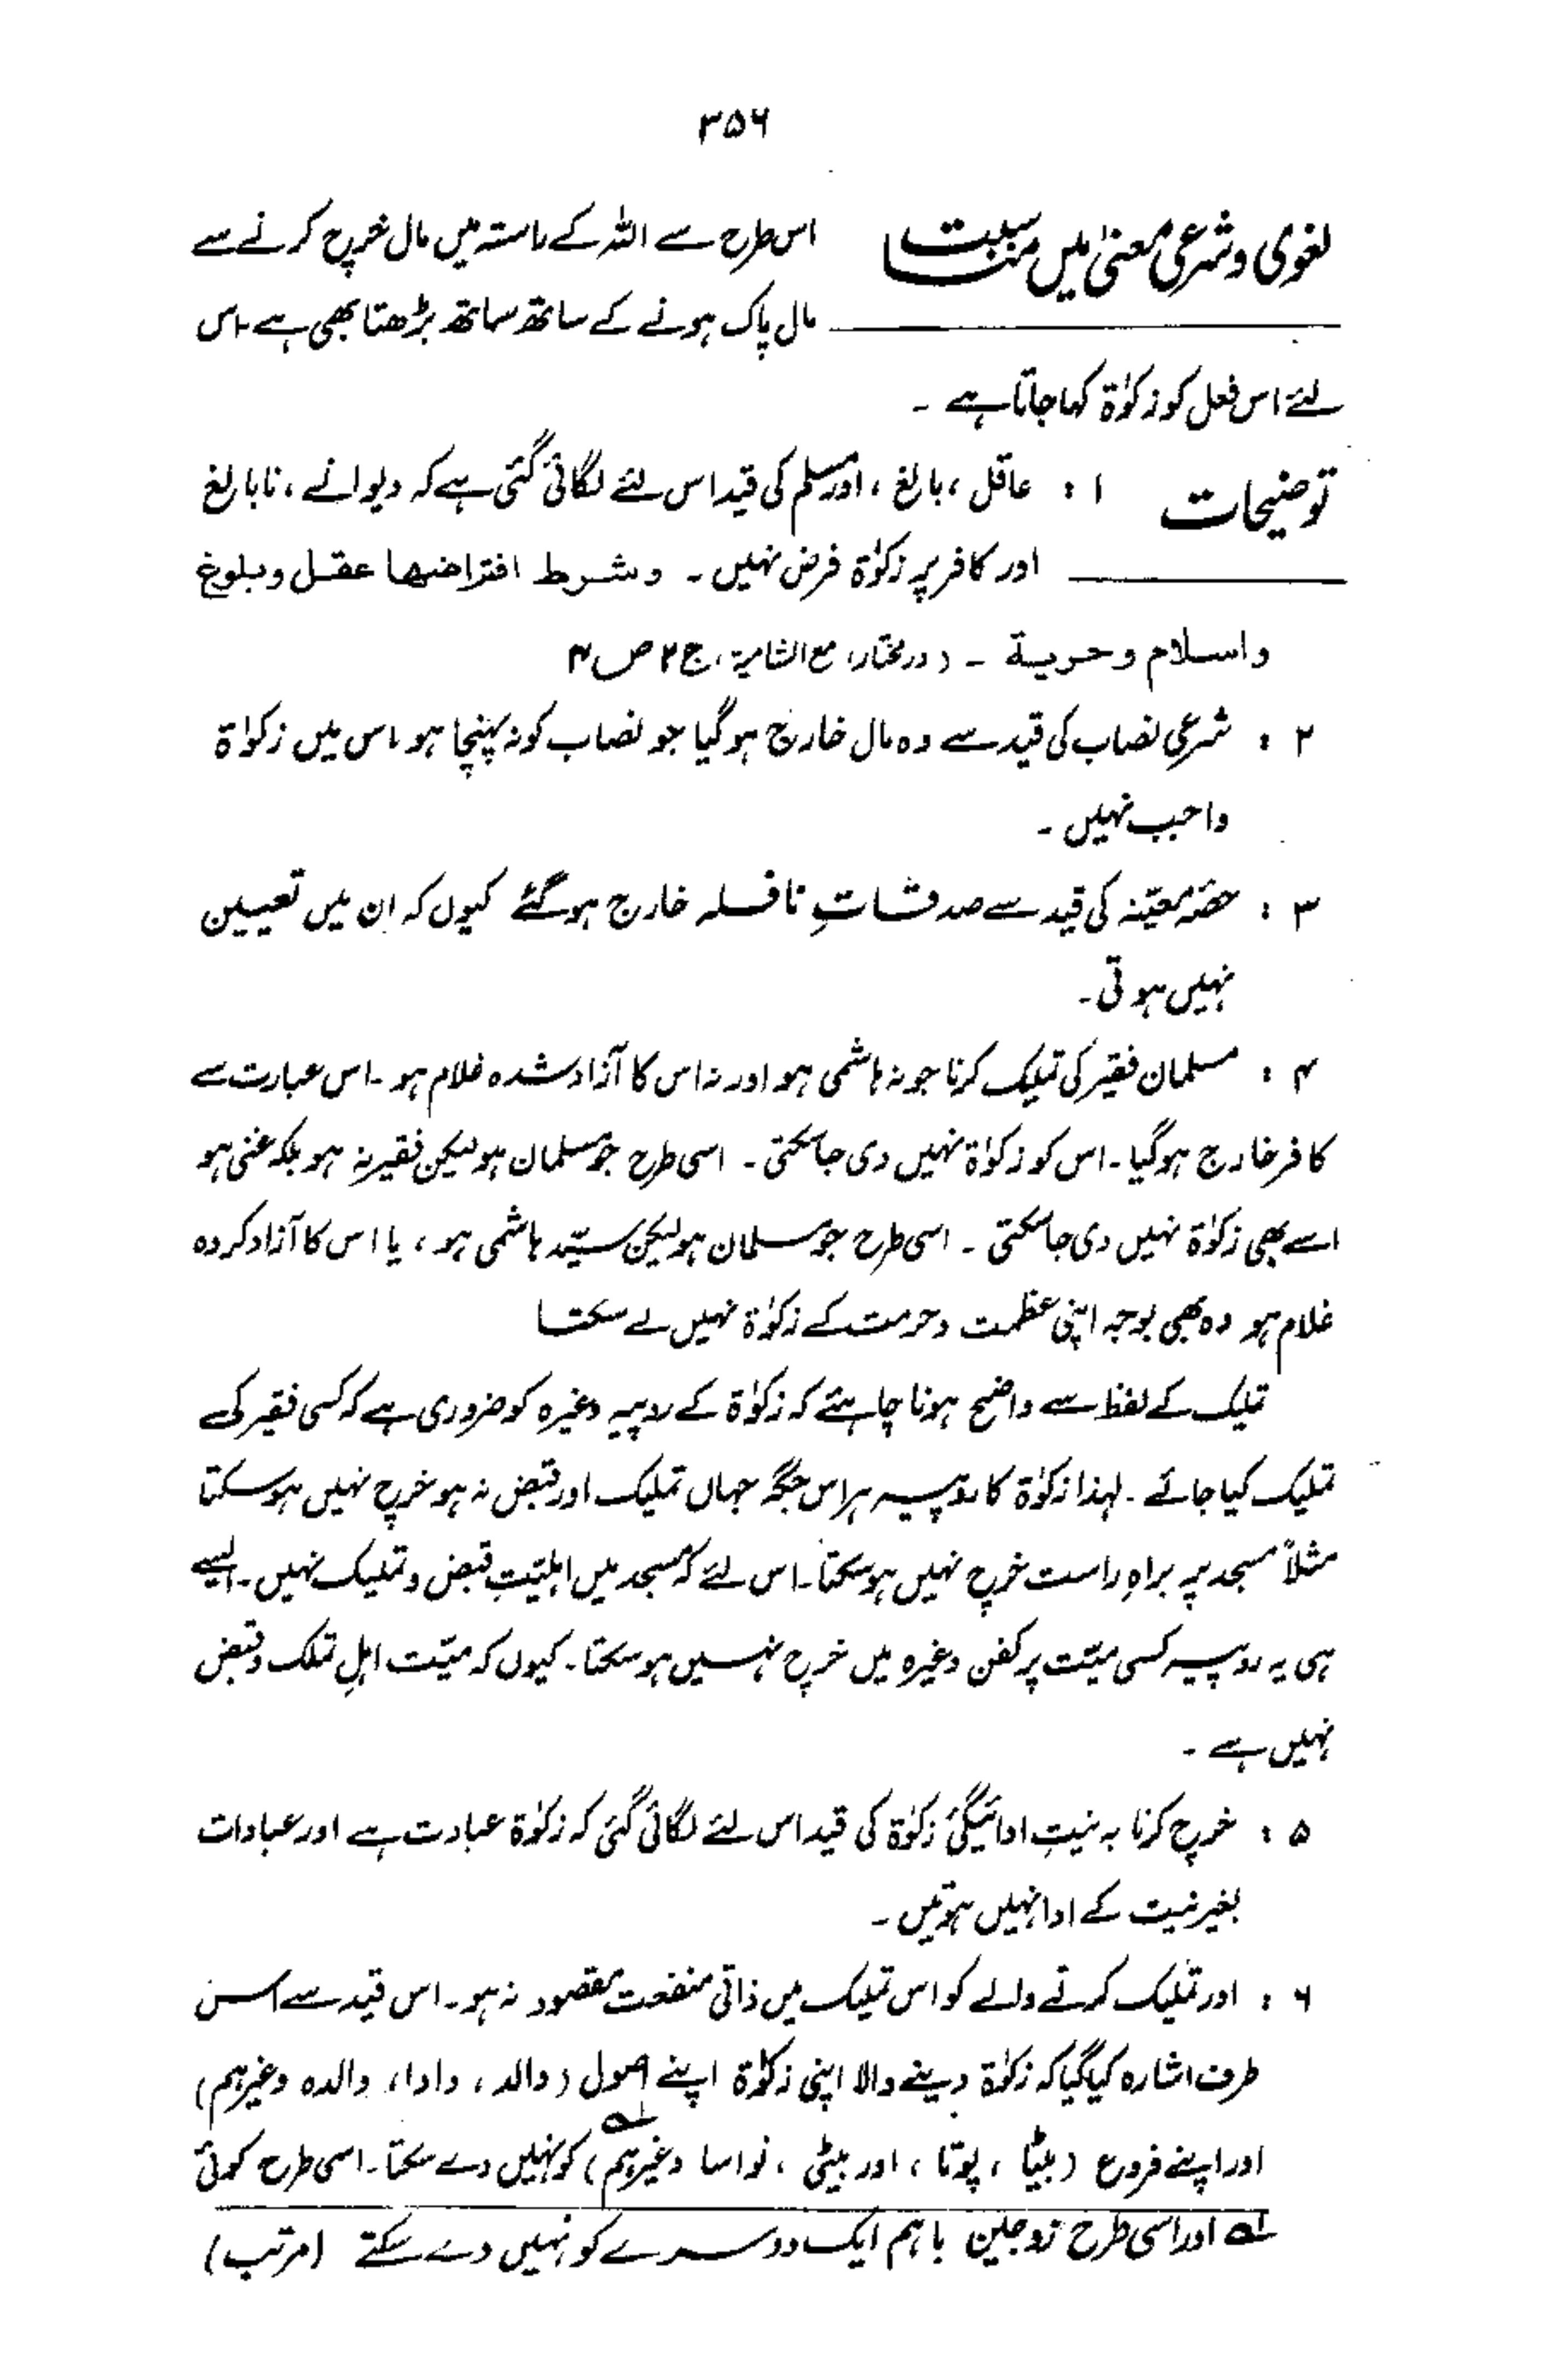 ۳۵۶
لغوی و شرعی معنیٰ میں مناسبت اس طرح سے اللہ کے راستہ میں مال خرچ کرنے سے
مال پاک ہونے کے ساتھ ساتھ بڑھتا بھی ہے۔ اس
لئے اس فعل کو زکوٰۃ کہا جاتا ہے ۔
توضیحات ۱ : عاقل ، بالغ ، اور مسلم کی قید اس لئے لگائی گئی ہے کہ دیوانے ، نابالغ
اور کافر پر زکوٰۃ فرض نہیں ۔ وشرط افتراضها عقل وبلوغ
واسلام وحرية ۔ (درمختار، مع الشامیۃ، ج ۲ ص ۴
۲ : شرعی نصاب کی قید سے وہ مال خارج ہوگیا جو نصاب کو نہ پہنچا ہو ۔ اس میں زکوٰۃ
واجب نہیں ۔
۳ : حصّہ معیّنہ کی قید سے صدقاتِ نافلہ خارج ہوگئے کیوں کہ ان میں تعیین
نہیں ہوتی ۔
۴ : مسلمان فقیر کی تملیک کرنا جو نہ ہاشمی ہو اور نہ اس کا آزاد شدہ غلام ہو ۔ اس عبارت سے
کافر خارج ہوگیا ۔ اس کو زکوٰۃ نہیں دی جاسکتی ۔ اسی طرح جو مسلمان ہو لیکن فقیر نہ ہو بلکہ غنی ہو
اسے بھی زکوٰۃ نہیں دی جاسکتی ۔ اسی طرح جو مسلمان ہو لیکن سیّد ہاشمی ہو ، یا اس کا آزاد کردہ
غلام ہو وہ بھی بوجہ اپنی عظمت وحرمت کے زکوٰۃ نہیں لے سکتا
تملیک کے لفظ سے واضح ہونا چاہئے کہ زکوٰۃ کے روپیہ وغیرہ کو ضروری ہے کہ کسی فقیر کی
تملیک کیا جائے ۔ لہذا زکوٰۃ کا روپیہ ہر اس جگہ جہاں تملیک اور قبض نہ ہو خرچ نہیں ہوسکتا
مثلاً مسجد پر براہِ راست خرچ نہیں ہوسکتا ۔ اس لئے کہ مسجد میں اہلیّتِ قبض وتملیک نہیں ۔ ایسے
ہی یہ روپیہ کسی میّت پر کفن وغیرہ میں خرچ نہیں ہوسکتا ۔ کیوں کہ میّت اہلِ تملک وقبض
نہیں ہے ۔
۵ : خرچ کرنا بہ نیتِ ادائیگیٔ زکوٰۃ کی قید اس لئے لگائی گئی کہ زکوٰۃ عبادت ہے اور عبادات
بغیر نیت کے ادا نہیں ہوتیں ۔
۶ : اور تملیک کرنے والے کو اس تملیک میں ذاتی منفعت مقصود نہ ہو ۔ اس قید سے اس
طرف اشارہ کیا گیا کہ زکوٰۃ دینے والا اپنی زکوٰۃ اپنے اصول (والد ، دادا، والدہ وغیرہم)
اور اپنے فروع (بیٹا ، پوتا ، اور بیٹی ، نواسا وغیرہم)لہ کو نہیں دے سکتا ۔ اسی طرح کوئی
لہ اور اسی طرح زوجین باہم ایک دوسرے کو نہیں دے سکتے (مرتب)